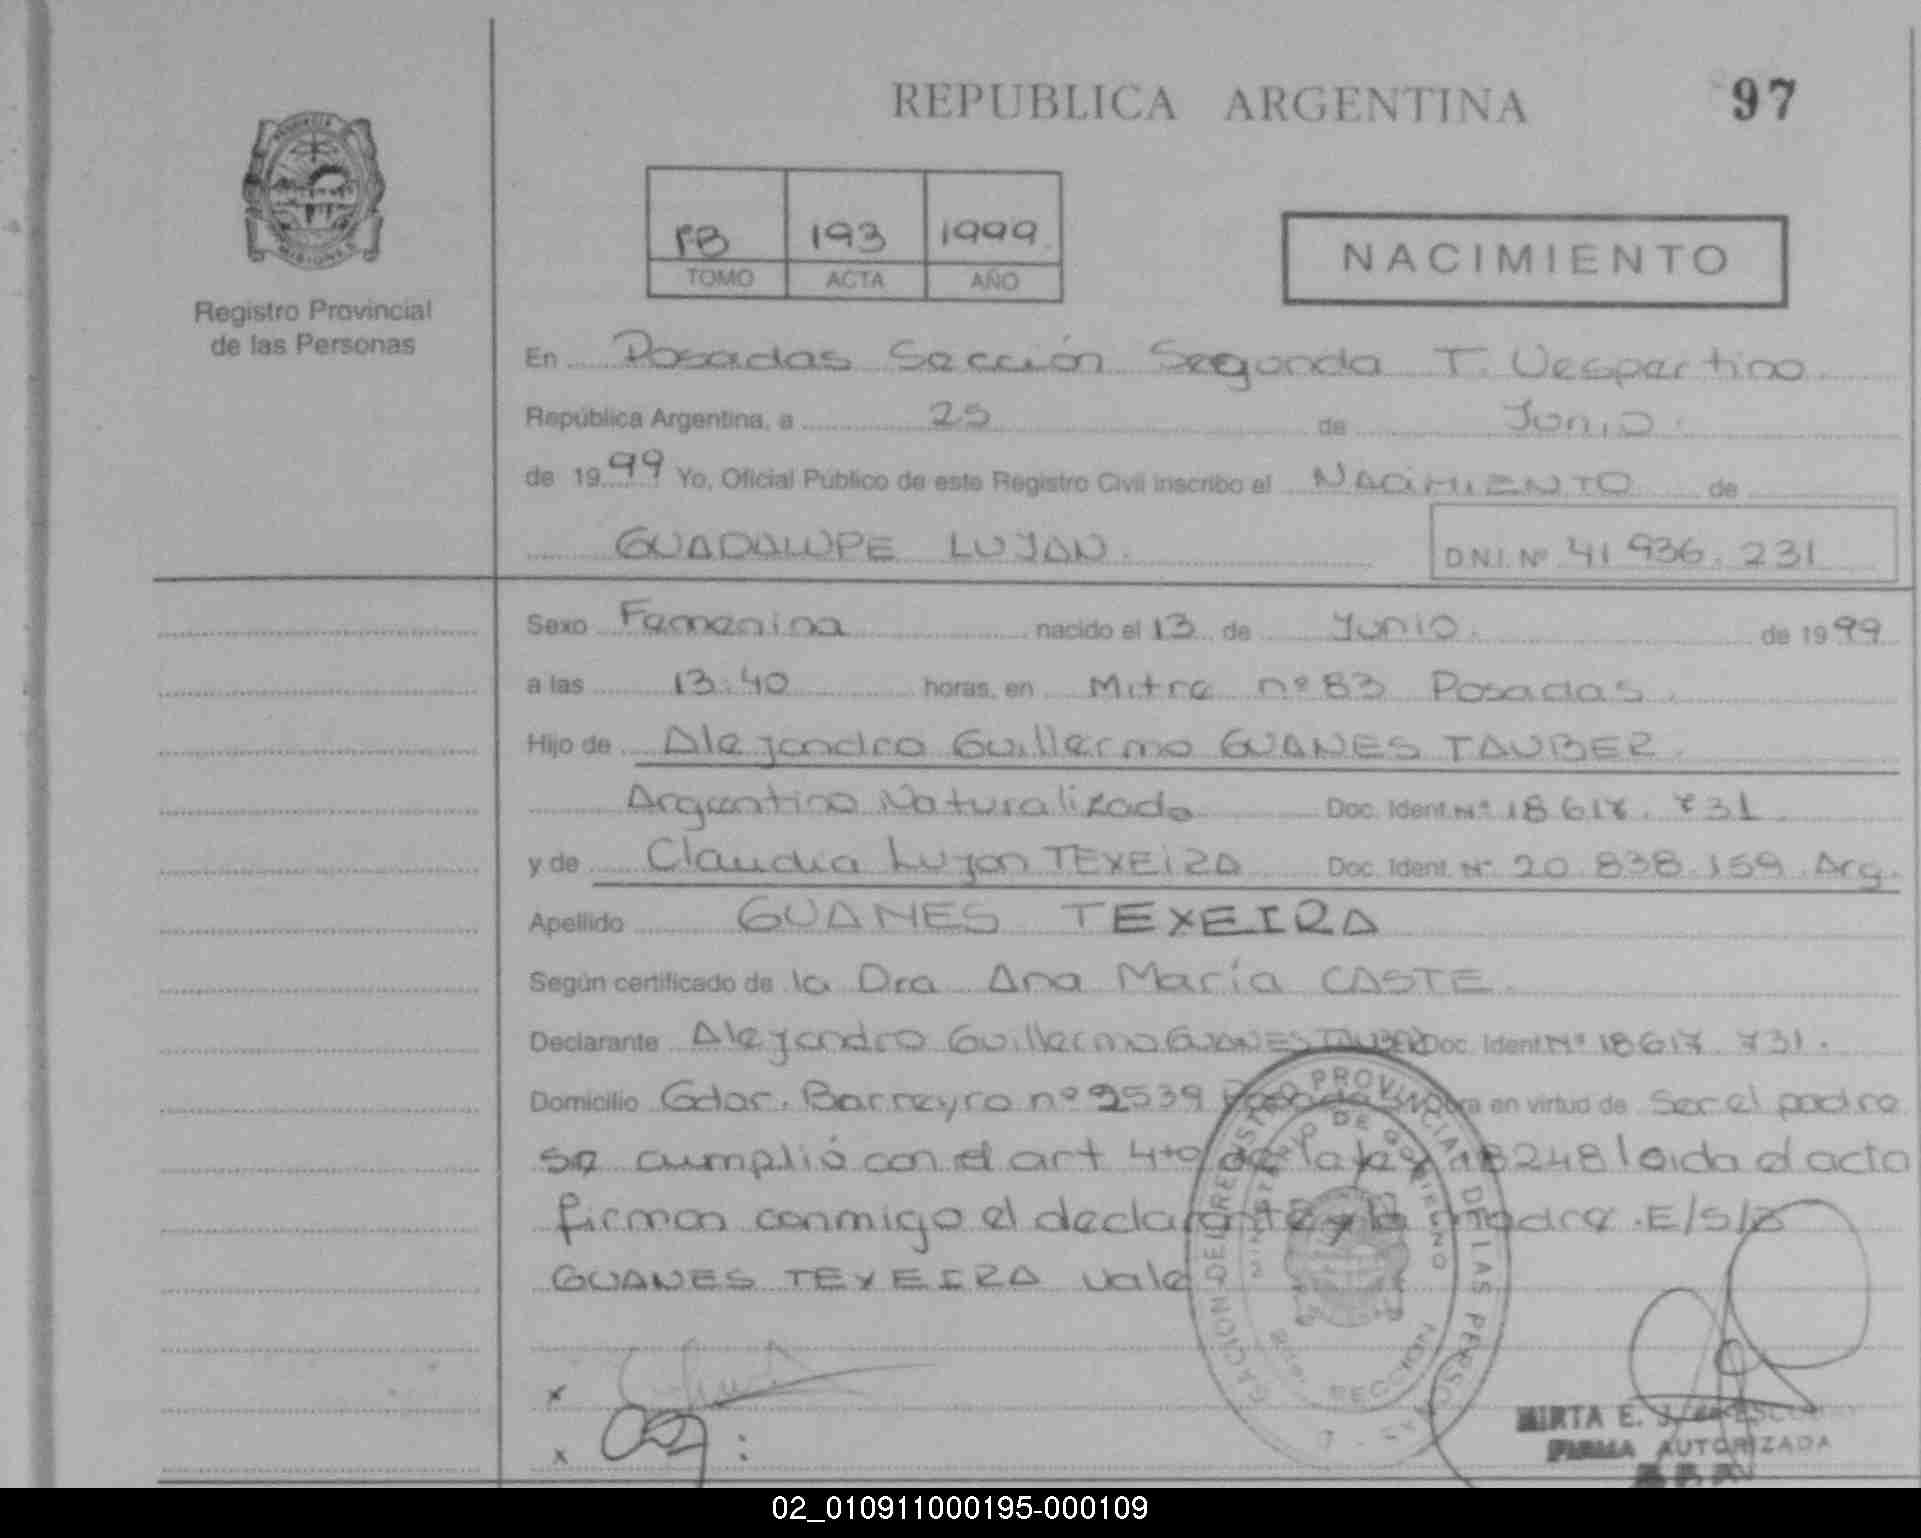 REPUBLICA ARGENTINA
97
PROVINCIA
MISIONES
Registro Provincial
de las Personas
193 1999
TOMO ACTA AÑO
NACIMIENTO
En Posadas Sección Segunda T. Vespertino
República Argentina, a 25 de Junio.
de 1999 Yo, Oficial Público de este Registro Civil inscribo el NACIMIENTO de
GUADALUPE LUJAN.
D.N.I. Nº 41 936. 231
Sexo Femenina nacido el 13 de Junio. de 1999
a las 13:40 horas, en Mitre nº 83 Posadas.
Hijo de Alejandro Guillermo GUANES TAUBER.
Argentino Naturalizado Doc. Ident. Nº 18 617. 731
y de Claudia Lujan TEXEIRA Doc. Ident. Nº 20.838.159 Arg.
Apellido GUANES TEXEIRA
Según certificado de la Dra Ana María CASTE.
Declarante Alejandro Guillermo GUANES TAUBER Doc. Ident. Nº 18617 731.
Domicilio Gdor. Barreyro nº 2539 Posadas Obra en virtud de Ser el padre
se cumplió con el art 4to de la ley 18248 leida el acta
firman conmigo el declarante y la madre. E/S/B
GUANES TEXEIRA vale
DEL REGISTRO PROVINCIAL DE LAS PERSONAS
MINISTERIO DE GOBIERNO
SECCION
x
x
MIRTA E.
FIRMA AUTORIZADA
02_010911000195-000109